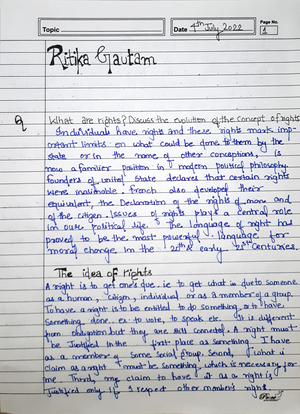 Topic
Date 4th July 2022
Page No.
1
Ritika Gautam
Q What are rights? Discuss the evolution of the concept of rights
Individuals have rights and these rights mark imp-
ortant limits on what could be done to them by the
state or in the name of other conceptions, is
now a familier position in modern political philosophy
founders of united state declares that certain rights
were inalienable. french also developed their
equivalent, the Declaration of the rights of man and
of the citizen. Issues of rights plays a central role
in our political life. The language of right has
proved to be the most powerful language for
moral change in the 20th early 21st centuries.
The idea of rights
A right is to get one's due. i.e to get what is due to someone
as a human, citizen, individual or as a member of a group.
To have a right is to be entitled to do something or to have
something done. ex: to vote, to speak etc. It is different
from obligation but they are still connected. A right must
be justified in the first place as something I have
as a member of some social group. Second, what i
claim as a right must be something which is necessary for
me. Third, my claim to have it as a right is
justified only if I respect other members right.